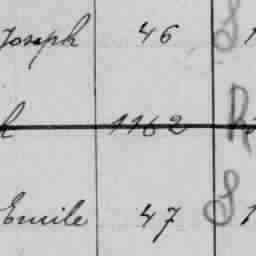 Joseph 46 S 1
h 1162 h
Emile 47 S 1